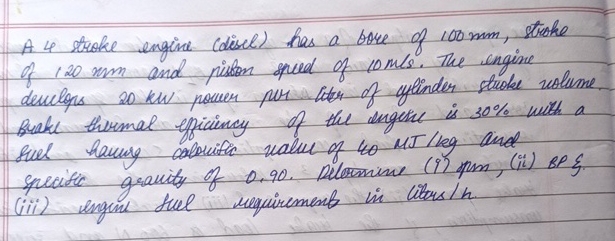 A 4 stroke engine (disel) has a bore of 100 mm, stroke
of 120 mm and piston speed of 10 m/s. The engine
develops 20 kW power per liter of cylinder stroke volume.
Brake thermal efficiency of the engine is 30% with a
fuel having calorific value of 40 MJ/kg and
specific gravity of 0.90. Determine (i) rpm, (ii) BP &
(iii) engine fuel requirements in liters/h.